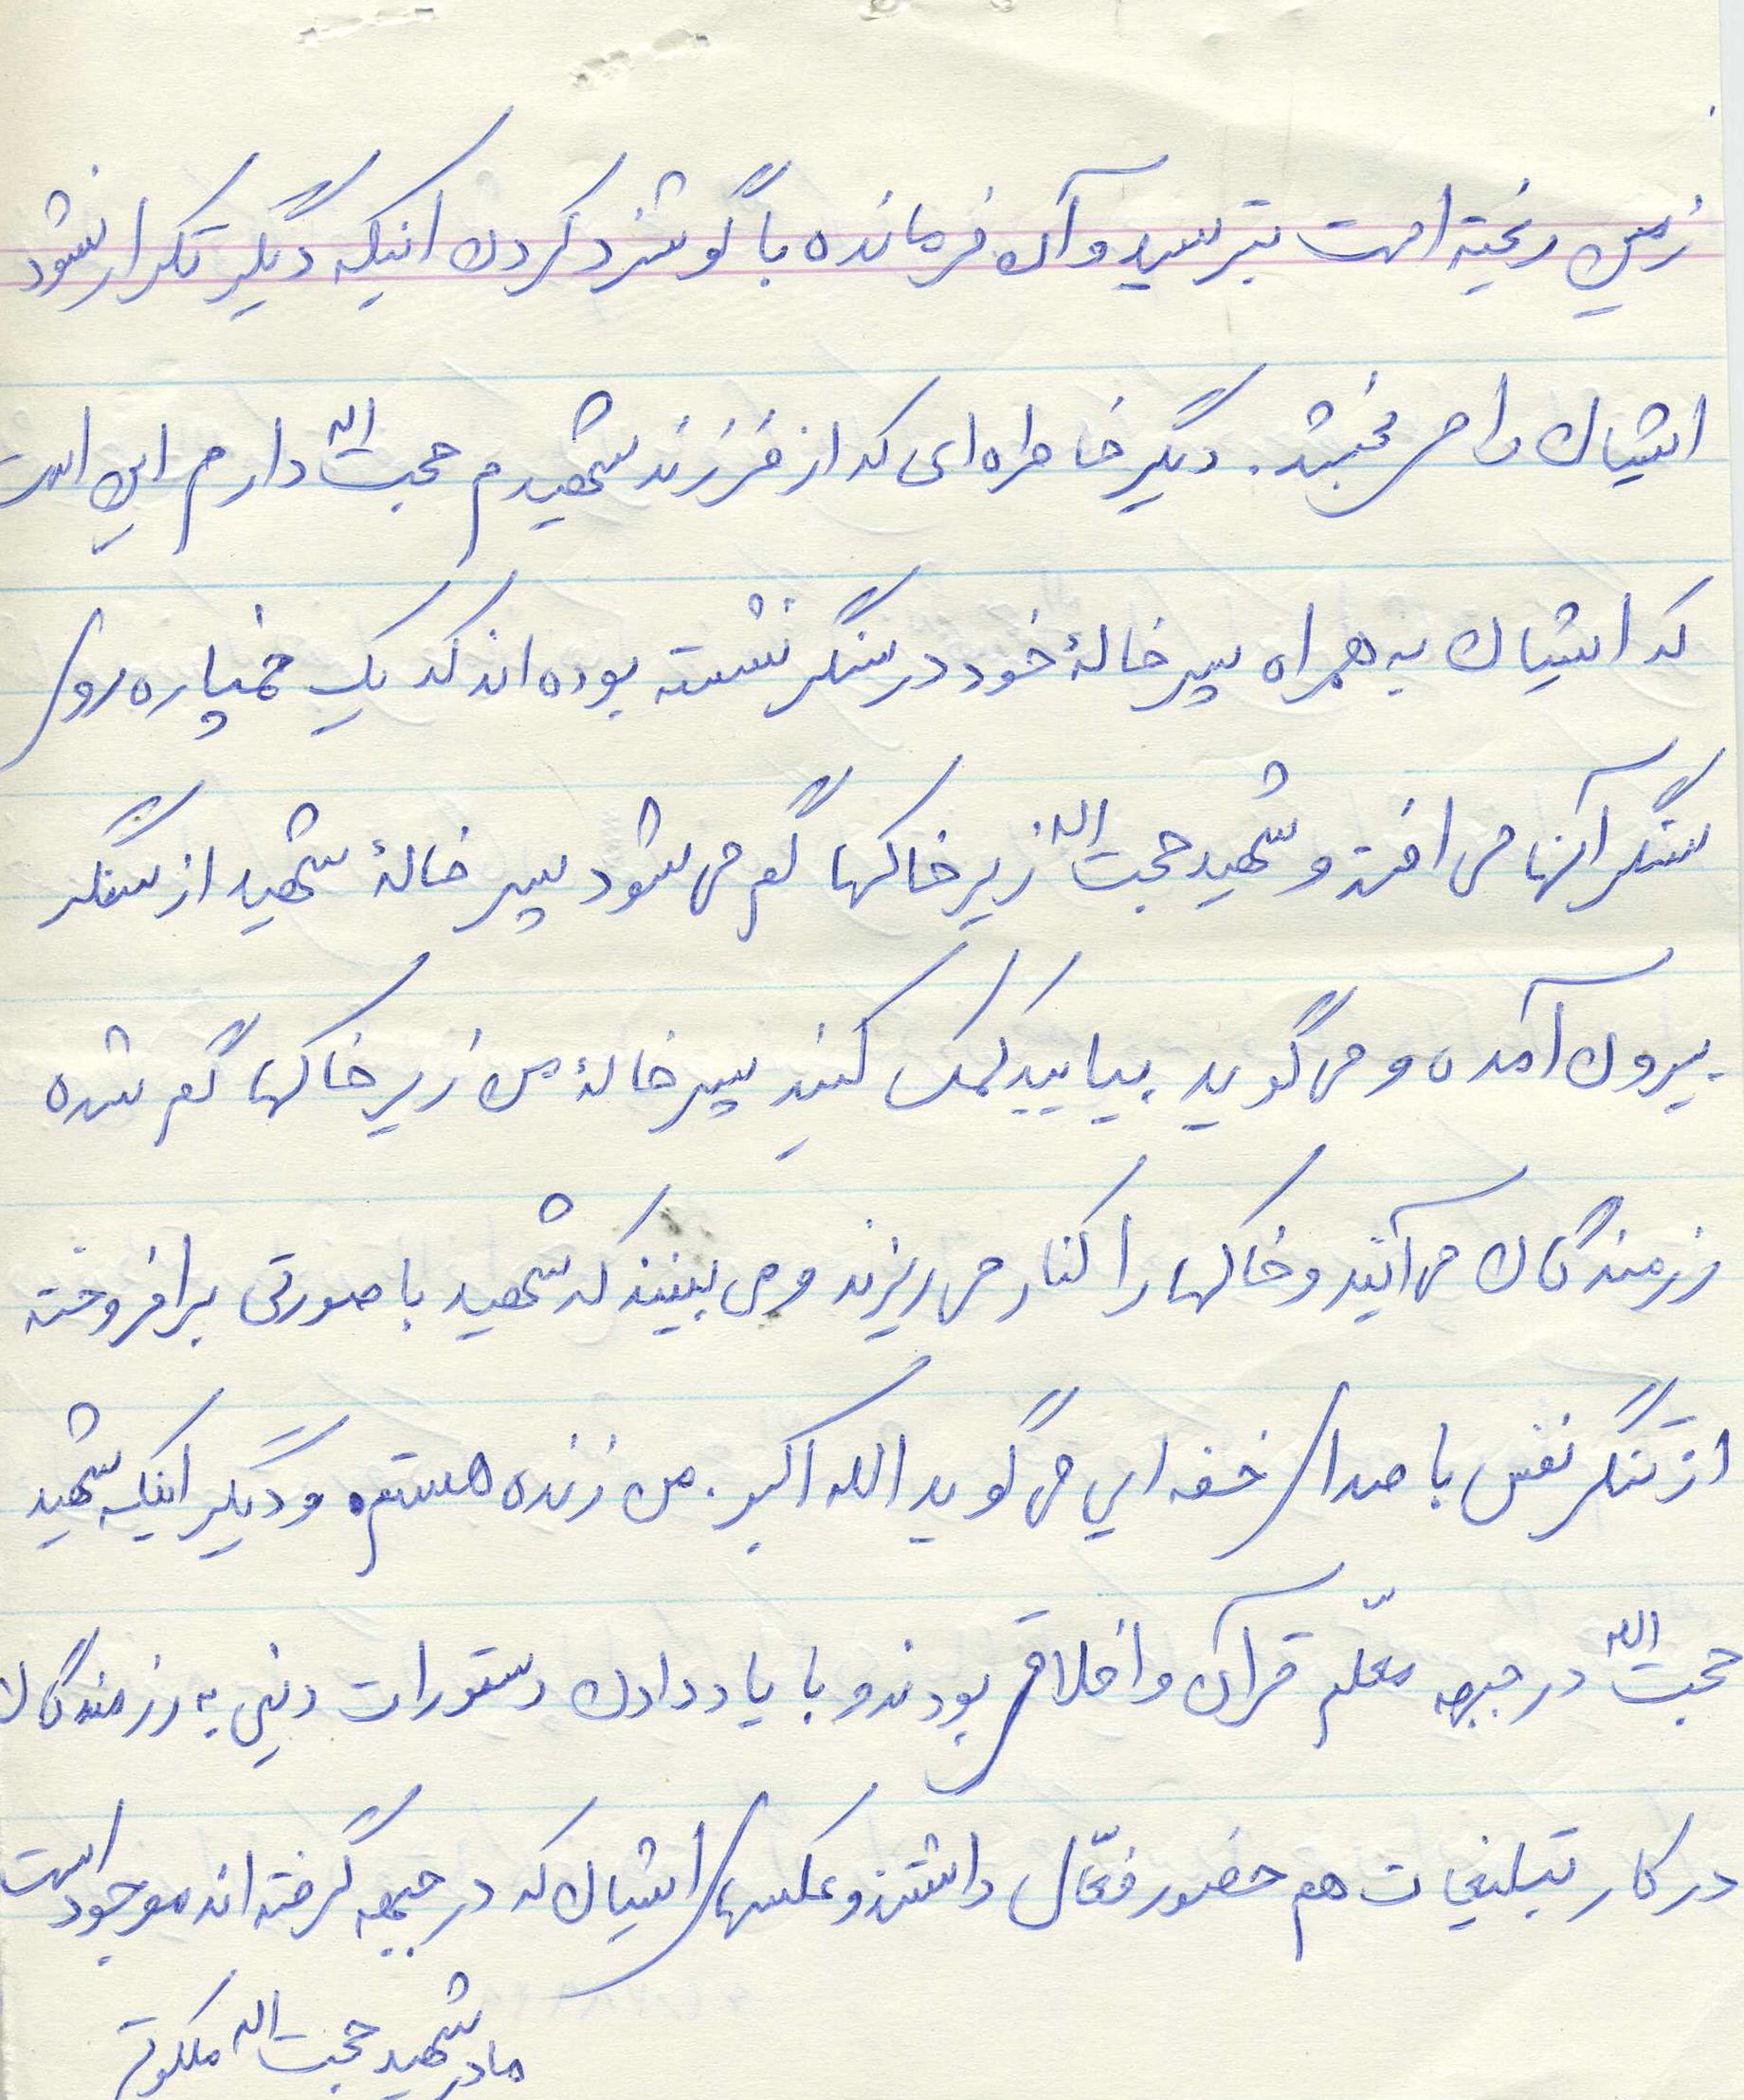 زمین ریخته است بترسید و آن فرمانده با گوشزد کردن اینکه دیگر تکرار نشود
ایشان را می‌بخشد. دیگر خاطره‌ای که از فرزند شهیدم حجت الله دارم این است
که ایشان به همراه پسر خالهٔ خود در سنگر نشسته بوده‌اند که یک خمپاره روی
سنگر آنها می افتد و شهید حجت اله زیر خاکها گم می شود پسر خالهٔ شهید از سنگر
بیرون آمده و می گوید بیایید کمک کنید پسر خالهٔ من زیر خاکها گم شده
رزمندگان می آیند و خاکها را کنار می ریزند و می بینند که شهید با صورتی برافروخته
از تنگی نفس با صدای خفه ایی می گوید الله اکبر. من زنده هستم. و دیگر اینکه شهید
حجت الله در جبهه معلّم قرآن و اخلاق بودند و با یاد دادن دستورات دینی به رزمندگان
در کار تبلیغات هم حضور فعّال داشتند و عکسهای ایشان که در جبهه گرفته اند موجود است
مادر شهید حجت اله ملکوتی